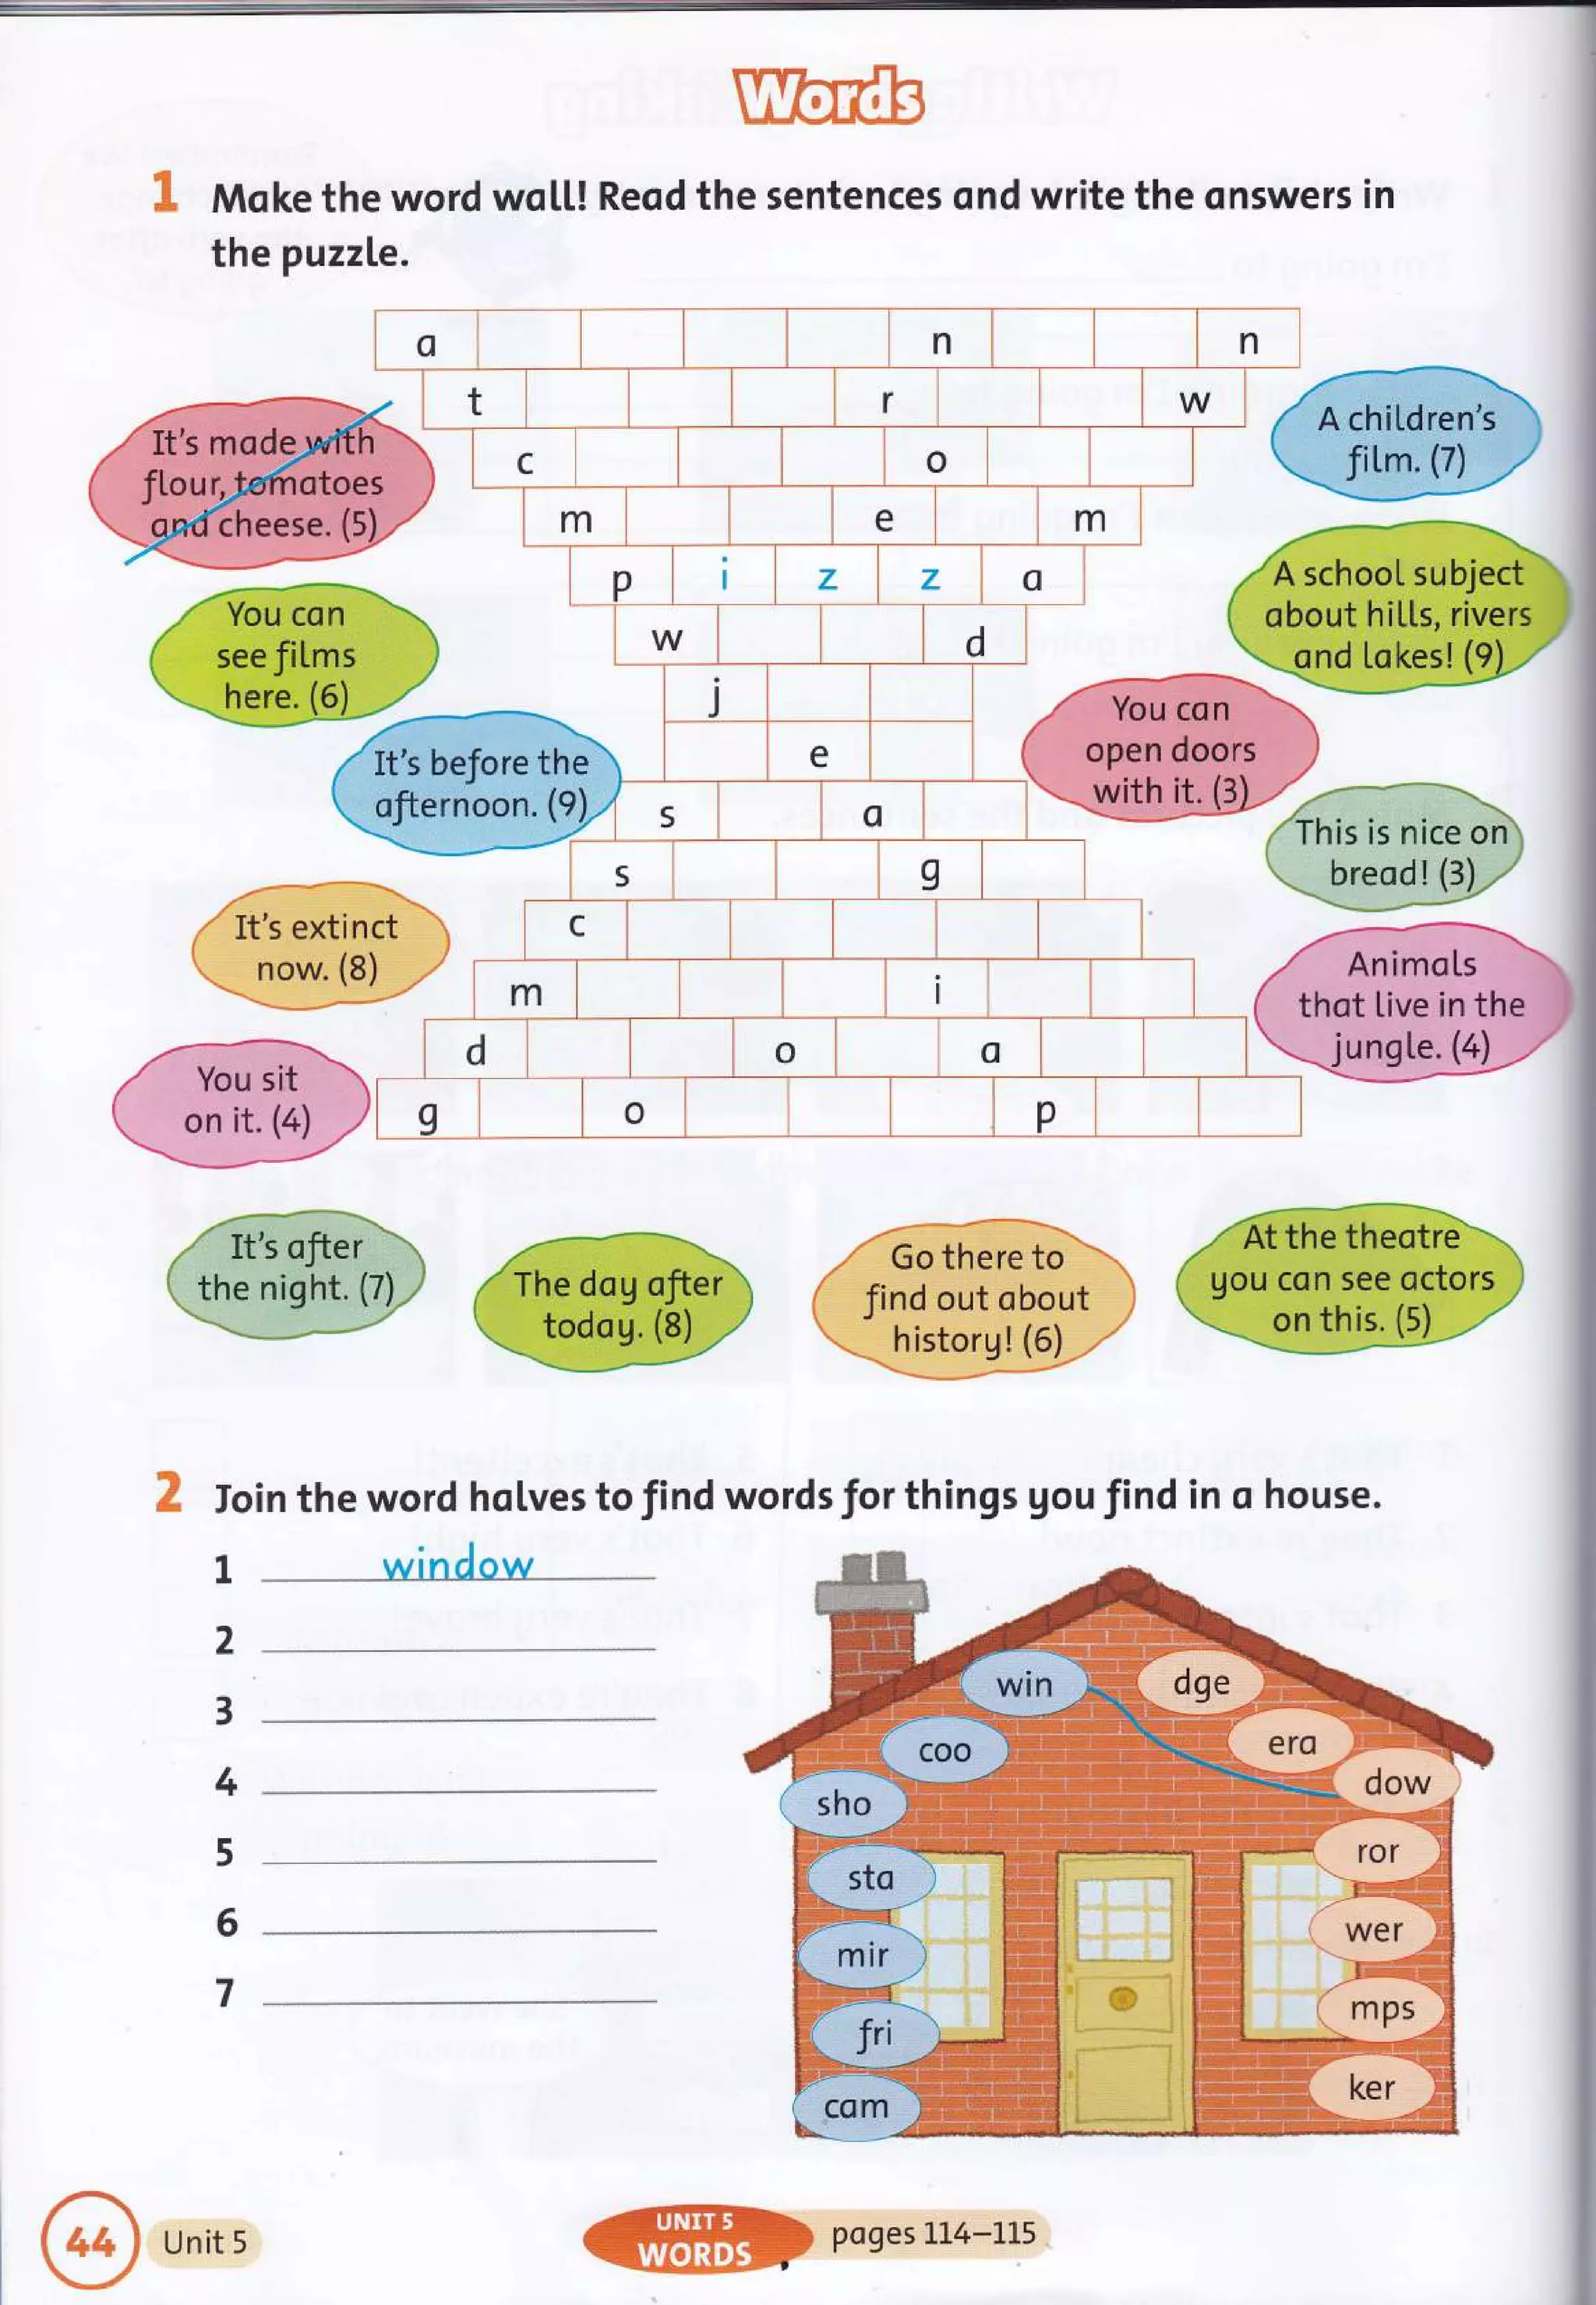 Words
1 Make the word wall! Read the sentences and write the answers in
the puzzle.
a n n
t r w
c o
m e m
p i z z a
w d
j
e
s a
s g
c
m i
d o a
g o p
It's made with
flour, tomatoes
and cheese. (5)
You can
see films
here. (6)
It's before the
afternoon. (9)
It's extinct
now. (8)
You sit
on it. (4)
A children's
film. (7)
A school subject
about hills, rivers
and lakes! (9)
You can
open doors
with it. (3)
This is nice on
bread! (3)
Animals
that live in the
jungle. (4)
It's after
the night. (7)
The day after
today. (8)
Go there to
find out about
history! (6)
At the theatre
you can see actors
on this. (5)
2 Join the word halves to find words for things you find in a house.
1 window
2
3
4
5
6
7
win
coo
sho
sta
mir
fri
cam
dge
era
dow
ror
wer
mps
ker
44 Unit 5
UNIT 5
WORDS
pages 114–115